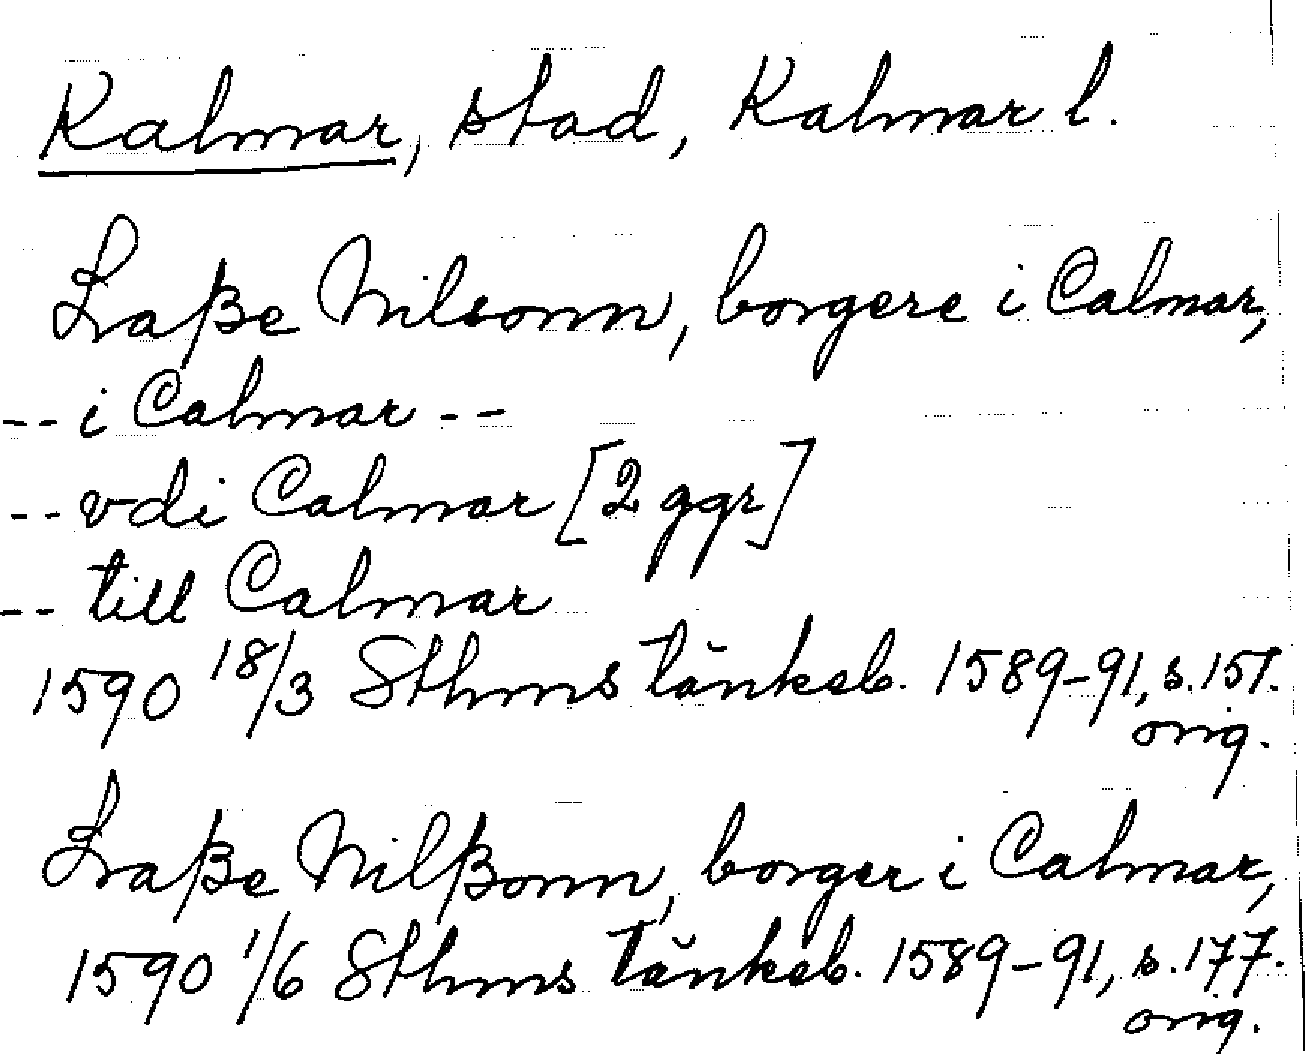 Kalmar, stad, Kalmar l.
Laße Nilsonn, borgere i Calmar,
-- i Calmar --
-- vdi Calmar [2 ggr]
-- till Calmar
1590 18/3 Sthms tänkeb. 1589-91, s. 157.
orig.
Laße Nilßonn, borger i Calmar,
1590 1/6 Sthms tänkeb. 1589-91, s. 177.
orig.